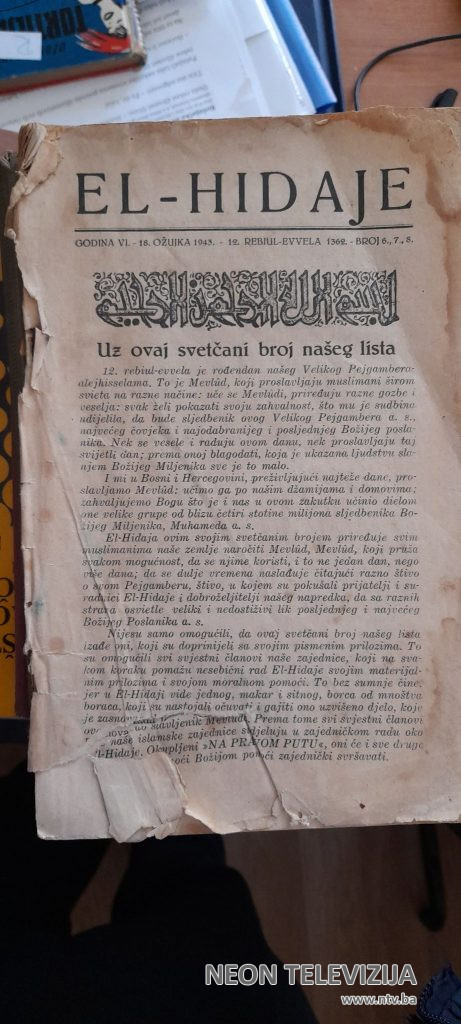 EL-HIDAJE
GODINA VI. - 18. OŽUJKA 1943. - 12. REBIUL-EVVELA 1362. - BROJ 6., 7., 8.
Uz ovaj svetčani broj našeg lista
12. rebiul-evvela je rođendan našeg Velikog Pejgambera-
alejhisselama. To je Mevlûd, koji proslavljaju muslimani širom
svieta na razne načine: uče se Mevlûdi, priređuju razne gozbe i
veselja: svak želi pokazati svoju zahvalnost, što mu je sudbina
udijelila, da bude sljedbenik ovog Velikog Pejgambera a. s.,
najvećeg čovjeka i najodabranijeg i posljednjeg Božijeg posla-
nika. Nek se vesele i raduju ovom danu, nek proslavljaju taj
svijetli dan; prema onoj blagodati, koja je ukazana ljudstvu sla-
njem Božijeg Miljenika sve je to malo.
I mi u Bosni i Hercegovini, preživljujući najteže dane, pro-
slavljamo Mevlûd: učimo ga po našim džamijama i domovima;
zahvaljujemo Bogu što je i nas u ovom zakutku učinio dielom
one velike grupe od blizu četiri stotine milijona sljedbenika Bo-
žijeg Miljenika, Muhameda a. s.
El-Hidaja ovim svojim svetčanim brojem priređuje svim
muslimanima naše zemlje naročiti Mevlûd, Mevlûd, koji pruža
svakom mogućnost, da se njime koristi, i to ne jedan dan, nego
više dana; da se dulje vremena naslađuje čitajući razno štivo
o ovom Pejgamberu, štivo, u kojem su pokušali prijatelji i su-
radnici El-Hidaje i dobroželjitelji našeg napredka, da sa raznih
strana osvietle veliki i nedostiživi lik posljednjeg i najvećeg
Božijeg Poslanika a. s.
Nijesu samo omogućili, da ovaj svetčani broj našeg lista
izađe oni, koji su doprinijeli sa svojim pismenim prilozima. To
su omogućili svi svjestni članovi naše zajednice, koji na sva-
kom koraku pomažu nesebični rad El-Hidaje svojim materijal-
nim prilozima i svojom moralnom pomoći. To bez sumnje čine,
jer u El-Hidaji vide jednog, makar i sitnog, borca od mnoštva
boraca, koji su nastojali očuvati i gajiti ono uzvišeno djelo, koje
je slavljenik Mevluda. Prema tome svi svjestni članovi
naše islamske zajednice sudjeluju u zajedničkom radu oko
El-Hidaje. Okupljeni »NA PRAVOM PUTU«, oni će i sve druge
Božijom pomoći zajednički svršavati.
NEON TELEVIZIJA
www.ntv.ba